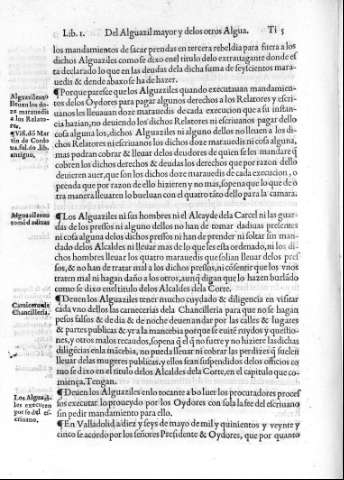 Lib. I. Del Alguazil mayor y delos otros Algua. Ti 5
los mandamientos de sacar prendas en tercera rebeldia para fuera a los
dichos Alguaziles como se dixo en el titulo delo extrauagante donde es
ta declarado lo que en las deudas dela dicha suma de seyscientos mara-
uedis & dende abaxo se ha de hazer.
¶Porque paresce que los Alguaziles quando executauan mandamien
tos delos Oydores para pagar algunos derechos a los Relatores y escri-
uanos les lleuauan doze marauedis de cada execucion que a su instan-
cia hazian, no deuiendo los dichos Relatores ni escriuanos pagar dello
cosa alguna los dichos Alguaziles ni alguno dellos no lleuen a los di-
chos Relatores ni escriuanos los dichos doze marauedis ni cosa alguna,
mas podran cobrar & lleuar delos deudores de quien se les mandare q̃
cobren los dichos derechos & deudas los derechos que por razon dello
deuieren auer, que son los dichos doze marauedis de cada execucion, o
prenda que por razon de ello hizieren y no mas, so pena que lo que de o
tra manera lleuaren lo bueluan con el quatro tãto dello para la camara.
¶Los Alguaziles ni sus hombres ni el Alcayde dela Carcel ni las guar
das de los pressos ni alguno dellos no han de tomar dadiuas presentes
ni cosa alguna delos dichos pressos ni han de prender ni soltar sin man
dado delos Alcaldes ni lleuar mas de lo que les esta ordenado, ni los di-
chos hombres lleuar los quatro marauedis que solian lleuar delos pres
sos, & no han de tratar mal a los dichos pressos, ni cõsentir que los vnos
traten mal ni hagan daño a los otros, aunq̃ digan que lo hazen burlãdo
como se dixo en el titulo delos Alcaldes dela Corte.
¶Deuen los Alguaziles tener mucho cuydado & diligencia en visitar
cada vno dellos las carnecerias dela Chancilleria para que no se hagan
pesos falsos & de dia & de noche deuen andar por las calles & lugares
& partes publicas & yr a la mancebia porque se euitẽ ruydos y questio-
nes, y otros malos recaudos, so pena q̃ el q̃ no fuere y no hiziere las dichas
diligẽcias en la mãcebia, no pueda lleuar ni cobrar las perdizes q̃ suelen
lleuar delas mugeres publicas, y ellos sean suspendidos delos officios co
mo se dixo en el titulo delos Alcaldes dela Corte, en el capitulo que co-
miença. Tengan.
¶Deuen los Alguaziles en lo tocante a bo luer los procuradores proces
sos executar lo proueydo por los Oydores con sola la fee del escriuano
sin pedir mandamiento para ello.
¶En Valladolid a diez y seys de mayo de mil y quinientos y veynte y
cinto se acordo por los señores Presidente & Oydores, que por quanto
Alguaziles no
lleuen los do-
ze marauedis
a los Relato-
res.
¶Visi. dõ Mar
tin de Cordo
ua. fol. 60. lib.
antiguo.
Alguaziles no
tomẽ dadiuas
Carnicerias dela
Chancilleria.
Los Alguazi-
les executen
por fe del es-
criuano.